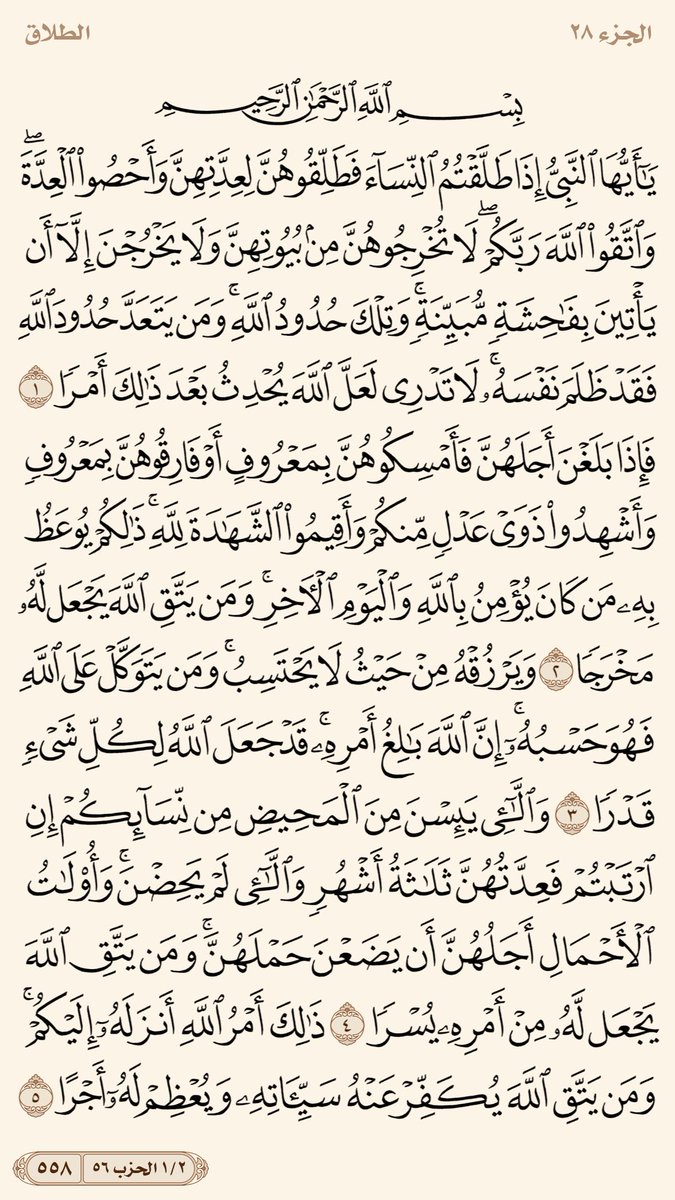 الجزء ٢٨ الطلاق
بِسْمِ ٱللَّهِ ٱلرَّحْمَٰنِ ٱلرَّحِيمِ
يَٰٓأَيُّهَا ٱلنَّبِىُّ إِذَا طَلَّقْتُمُ ٱلنِّسَآءَ فَطَلِّقُوهُنَّ لِعِدَّتِهِنَّ وَأَحْصُوا۟ ٱلْعِدَّةَ ۖ
وَٱتَّقُوا۟ ٱللَّهَ رَبَّكُمْ ۖ لَا تُخْرِجُوهُنَّ مِنۢ بُيُوتِهِنَّ وَلَا يَخْرُجْنَ إِلَّآ أَن
يَأْتِينَ بِفَٰحِشَةٍ مُّبَيِّنَةٍ ۚ وَتِلْكَ حُدُودُ ٱللَّهِ ۚ وَمَن يَتَعَدَّ حُدُودَ ٱللَّهِ
فَقَدْ ظَلَمَ نَفْسَهُۥ ۚ لَا تَدْرِى لَعَلَّ ٱللَّهَ يُحْدِثُ بَعْدَ ذَٰلِكَ أَمْرًا ١
فَإِذَا بَلَغْنَ أَجَلَهُنَّ فَأَمْسِكُوهُنَّ بِمَعْرُوفٍ أَوْ فَارِقُوهُنَّ بِمَعْرُوفٍ
وَأَشْهِدُوا۟ ذَوَىْ عَدْلٍ مِّنكُمْ وَأَقِيمُوا۟ ٱلشَّهَٰدَةَ لِلَّهِ ۚ ذَٰلِكُمْ يُوعَظُ
بِهِۦ مَن كَانَ يُؤْمِنُ بِٱللَّهِ وَٱلْيَوْمِ ٱلْءَاخِرِ ۚ وَمَن يَتَّقِ ٱللَّهَ يَجْعَل لَّهُۥ
مَخْرَجًا ٢ وَيَرْزُقْهُ مِنْ حَيْثُ لَا يَحْتَسِبُ ۚ وَمَن يَتَوَكَّلْ عَلَى ٱللَّهِ
فَهُوَ حَسْبُهُۥٓ ۚ إِنَّ ٱللَّهَ بَٰلِغُ أَمْرِهِۦ ۚ قَدْ جَعَلَ ٱللَّهُ لِكُلِّ شَىْءٍ
قَدْرًا ٣ وَٱلَّٰٓـِٔى يَئِسْنَ مِنَ ٱلْمَحِيضِ مِن نِّسَآئِكُمْ إِنِ
ٱرْتَبْتُمْ فَعِدَّتُهُنَّ ثَلَٰثَةُ أَشْهُرٍ وَٱلَّٰٓـِٔى لَمْ يَحِضْنَ ۚ وَأُو۟لَٰتُ
ٱلْأَحْمَالِ أَجَلُهُنَّ أَن يَضَعْنَ حَمْلَهُنَّ ۚ وَمَن يَتَّقِ ٱللَّهَ
يَجْعَل لَّهُۥ مِنْ أَمْرِهِۦ يُسْرًا ٤ ذَٰلِكَ أَمْرُ ٱللَّهِ أَنزَلَهُۥٓ إِلَيْكُمْ ۚ
وَمَن يَتَّقِ ٱللَّهَ يُكَفِّرْ عَنْهُ سَيِّـَٔاتِهِۦ وَيُعْظِمْ لَهُۥٓ أَجْرًا ٥
١/٢ الحزب ٥٦ ٥٥٨